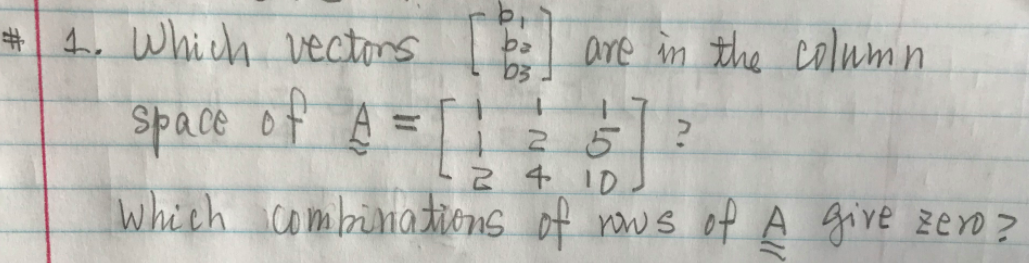 # 1. Which vectors [b1 b2 b3] are in the column
space of A = [1 1 1
1 2 5
2 4 10] ?
Which combinations of rows of A give zero?